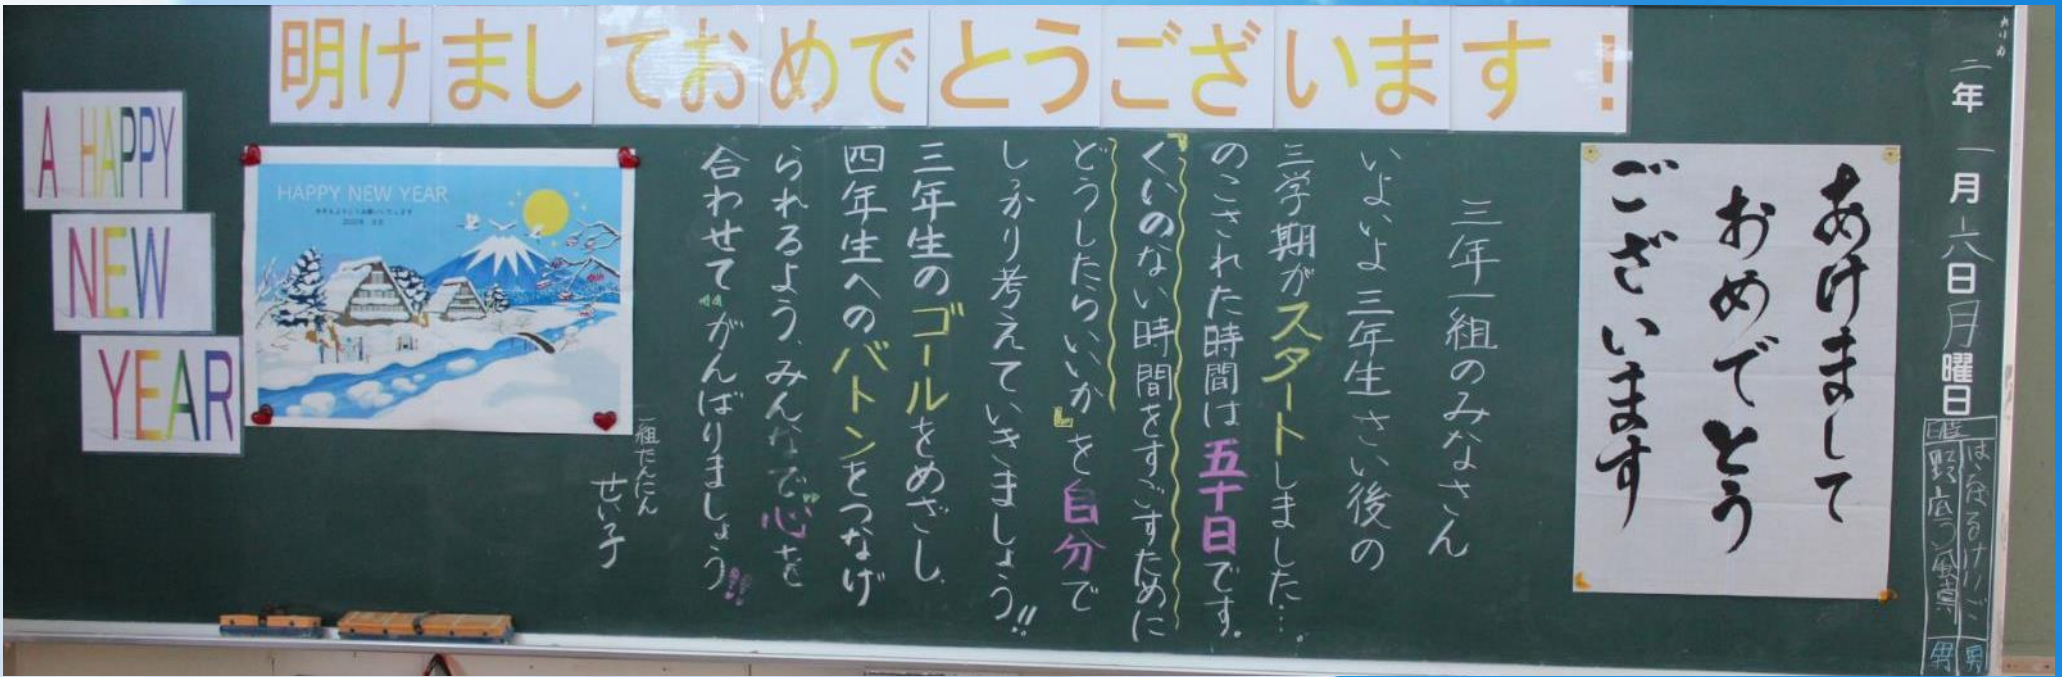 明けましておめでとうございます!
A HAPPY
NEW
YEAR
HAPPY NEW YEAR
あけまして
おめでとう
ございます
二年 一月 六日 月曜日
日直
三年一組のみなさん
いよいよ三年生さい後の
三学期がスタートしました…。
のこされた時間は五十日です。
『くいのない時間をすごすために
どうしたらいいか』を自分で
しっかり考えていきましょう!!
三年生のゴールをめざし、
四年生へのバトンをつなげ
られるよう、みんなで"心を
合わせて"がんばりましょう!!
一組たんにん
せい子